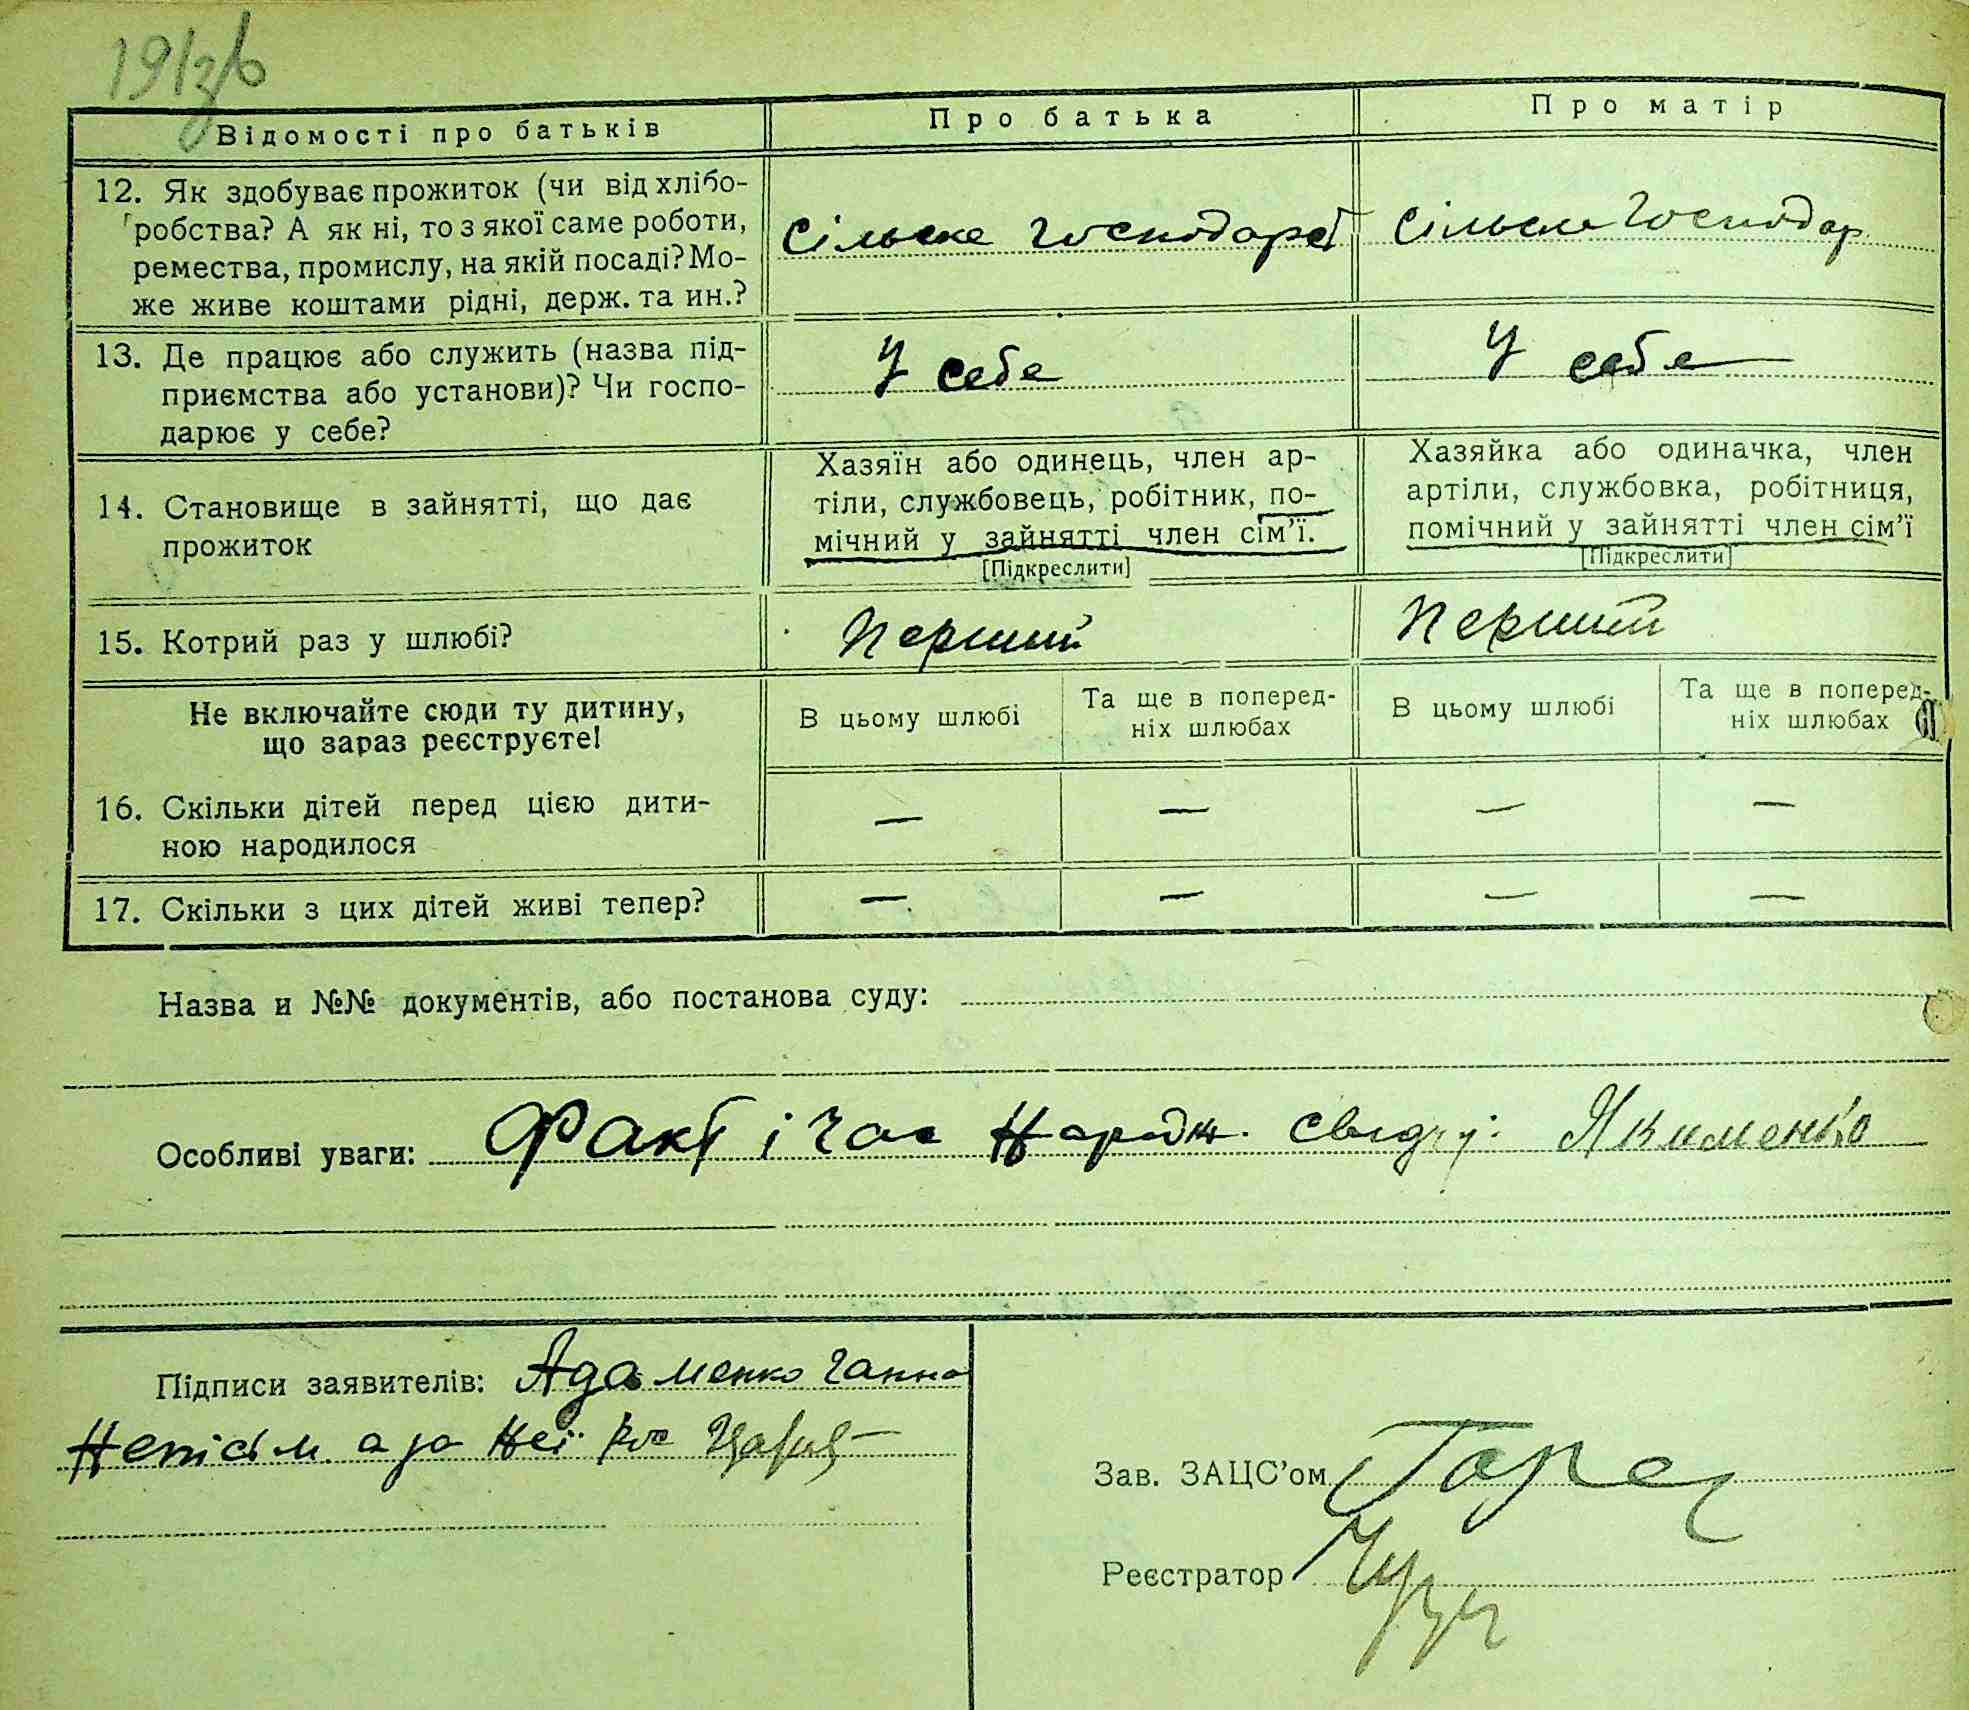 Відомості про батьків
Про батька
Про матір
12. Як здобуває прожиток (чи від хлібо-
робства? А як ні, то з якої саме роботи,
ремества, промислу, на якій посаді? Мо-
же живе коштами рідні, держ. та ин.?
Сільське господарст
Сільське господар
13. Де працює або служить (назва під-
приємства або установи)? Чи госпо-
дарює у себе?
У себе
У себе
14. Становище в зайнятті, що дає
прожиток
Хазяїн або одинець, член ар-
тіли, службовець, робітник, по-
мічний у зайнятті член сім'ї.
[Підкреслити]
Хазяйка або одиначка, член
артіли, службовка, робітниця,
помічний у зайнятті член сім'ї
[Підкреслити]
15. Котрий раз у шлюбі?
Перший
Перший
Не включайте сюди ту дитину,
що зараз реєструєте!
В цьому шлюбі
Та ще в поперед-
ніх шлюбах
В цьому шлюбі
Та ще в поперед-
ніх шлюбах
16. Скільки дітей перед цією дити-
ною народилося
— — — —
17. Скільки з цих дітей живі тепер?
— — — —
Назва и №№ документів, або постанова суду:
Особливі уваги: Факт і час народж. Якименко
Підписи заявителів: Адаменко Ганна
Неписьм. а за неї
Зав. ЗАЦС'ом
Реєстратор